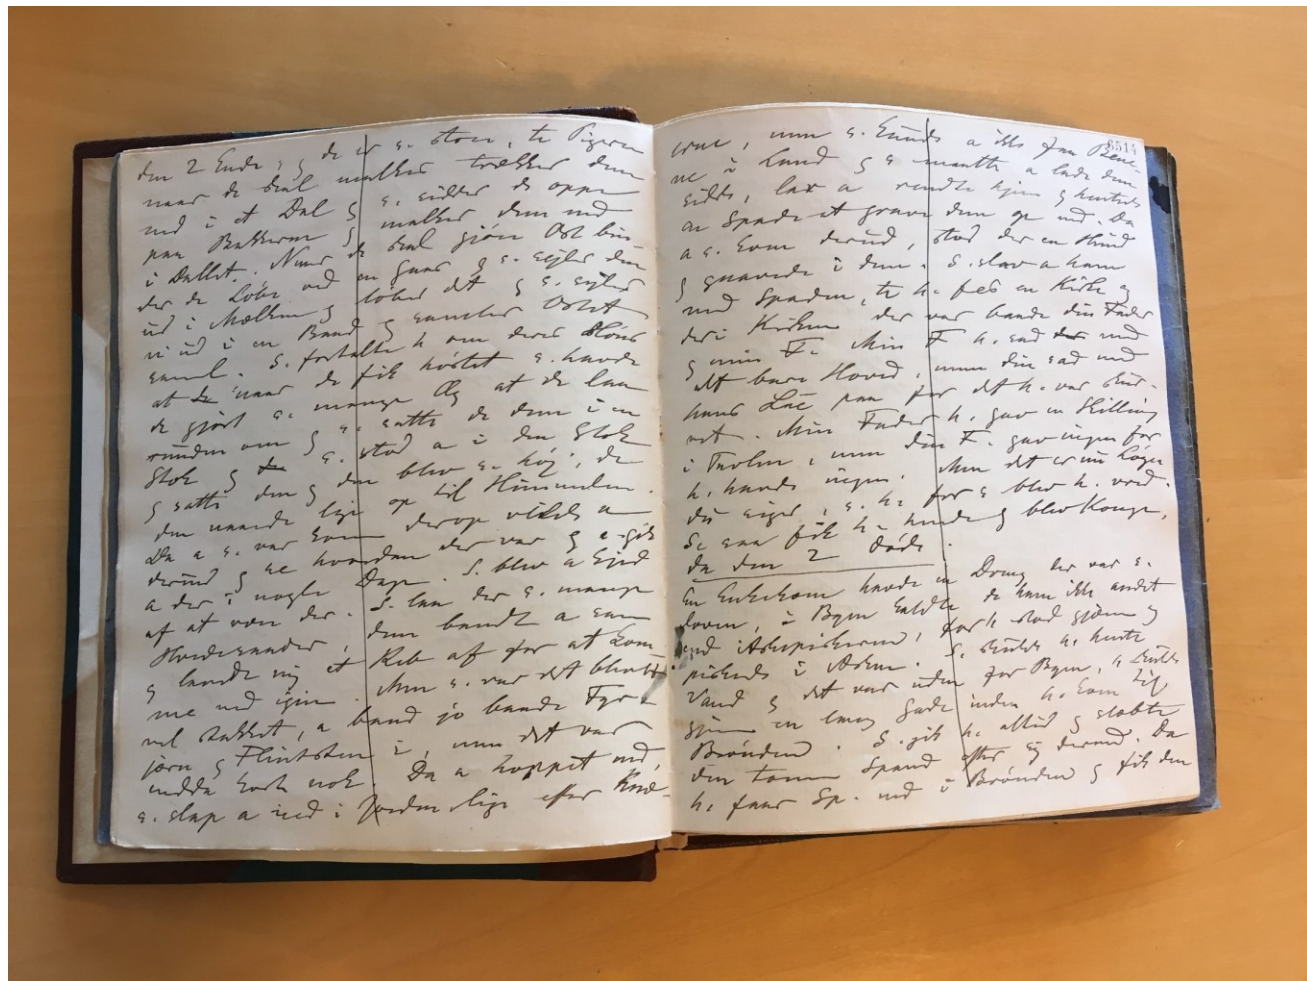 den 2 Ende og de er s. store, te Pigern
naar de skal malke trækker dem
ned i et Dal og s. sidder de oppe
paa Bakkerne og malker dem ned
i Dallet. Naar de skal gjøre Ost bin-
der de Løbe ved en Gaas og s. sejler den
ud i Mælken og løber det og s. sejler
vi ud i en Baad og samler Ostet
saml. S. fortalte h om deres Høns
at de naar de fik høstet s. havde
de gjort s. mange Æg at de laa
runden om og s. satte de dem i en
Stok og s. stod a i den Stok
og satte dem og den blev s. høj, de
den naaede lige op til Himmelen.
Da a s. var kom derop vilde a
derind og se hvordan der var og a gik
a der i nogle Dage. S. blev a kjed
af at være der. S. laa der s. mange
Hvedesaader, dem bandt a sam
og lavede mig et Reb af for at kom
me ned igjen. Men s. var det blevet
vel stakket, a band jo baade Fyr
jærn og Flintsten i, men det var
endda kort nok Da a hoppet ned,
s. slap a ned i Jorden lige efter Knæ-
erne, men s. kunde a ikke faa Bene-
ne i Land og s. maatte a lade dem
sidde, lav a rendte hjem og hentede
en Spade at grave dem op ved. Da
a s. kom derud, stod der en Hund
og gnavede i dem. S. slav a ham
med Spaden, te h. fes en Kirke og
der i Kirken der var baade din Fader
og min F. Min F h. sad der med
alt bare Hoved, men din sad med
hans Lue paa for det h. var skur-
vet. Min Fader h. gav en Skilling
i Tavlen, men din F. gav ingen for
h. havde ingen. Men det er nu Løgn
du siger, s. h. for s blev h. vred.
Se saa fik h. hende og blev Konge,
da den 2 døde.
En Enkekone havde en Dreng der var s.
doven, i Byen kaldte de ham ikke andet
end Askepiskeren, for h stod hjemme og
piskede i Asken. S. skulde h. hente
Vand og det var uden for Byen, h skulde
gjennem en lang Gade inden h. kom til
Brønden. S. gik h. altid og slæbte
den tomme Spand efter sig derned. Da
h. faar Sp. ned i Brønden og fik den